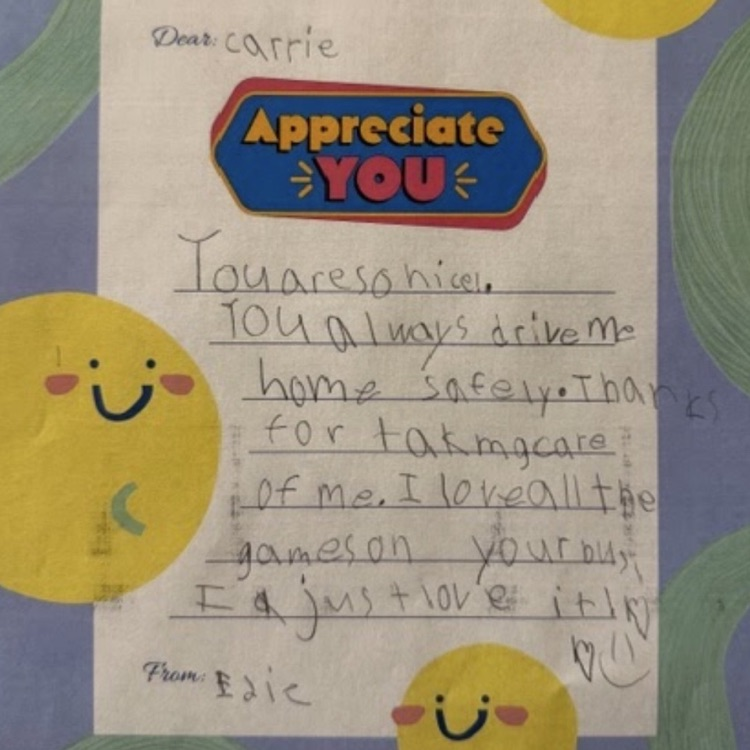 Dear: carrie
Appreciate
YOU
You are so nice!.
You always drive me
home safely. Thanks
for takmg care
of me. I love all the
games on your bus,
I just love it!
From: Edie